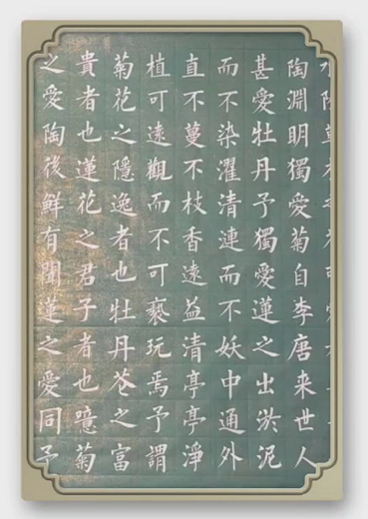 陶淵明獨愛菊自李唐来世人
甚愛牡丹予獨愛蓮之出淤泥
而不染濯清連而不妖中通外
直不蔓不枝香遠益清亭亭淨
植可遠觀而不可褻玩焉予謂
菊花之隱逸者也牡丹花之富
貴者也蓮花之君子者也噫菊
之愛陶後鮮有聞蓮之愛同予